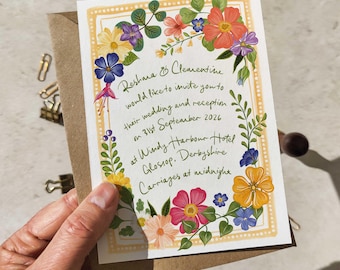 Reshma & Clementine
would like to invite you to
their wedding and reception
on 21st September 2026
at Windy Harbour Hotel
Glossop, Derbyshire
Carriages at midnight